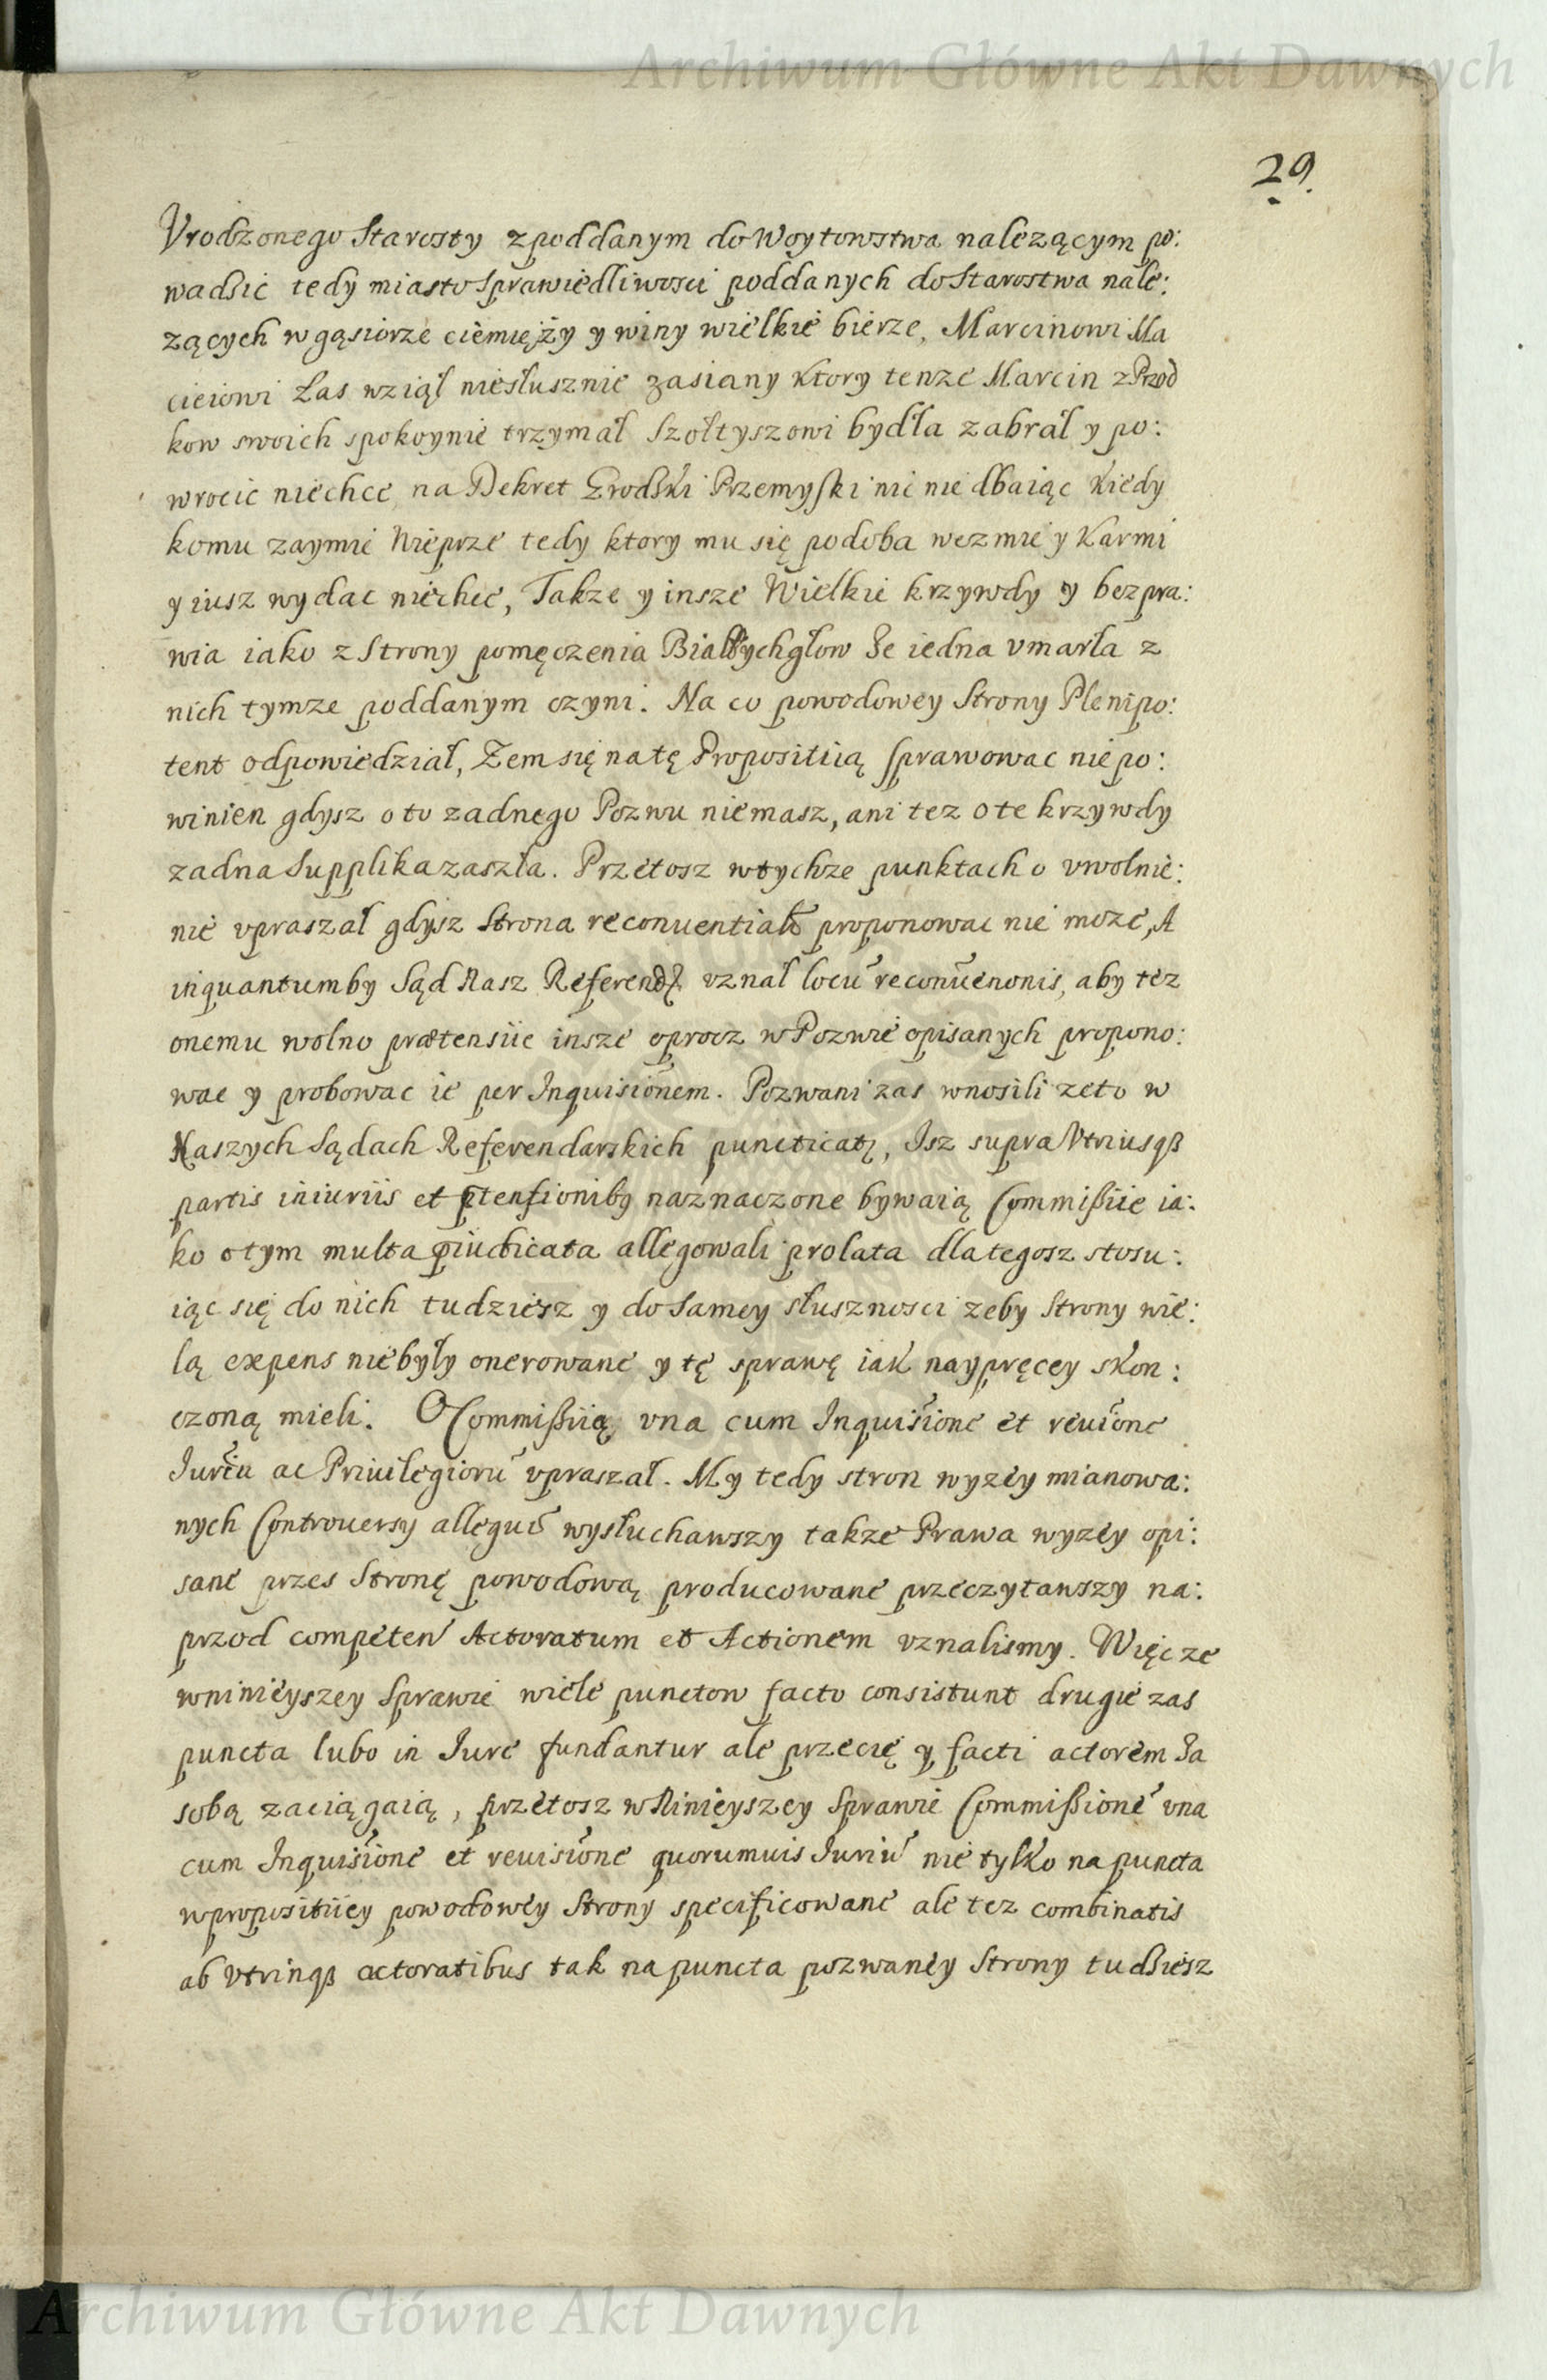 Archiwum Główne Akt Dawnych
29.
Vrodzonego Starosty z poddanym do Woytowstwa nalezącym po:
wadzic tedy miasto sprawiedliwosci poddanych do Starostwa nale:
zących w gąsiorze ciemięży y winy wielkie bierze, Marcinowi Ma
cieiowi Las wziął niesłusznie zasiany ktory tenze Marcin z Przod
kow swoich spokoynie trzymał Szołtyszowi bydła zabrał y po:
wrocic niechce na Dekret Grodzki Przemyski nic nie dbaiąc kiedy
komu zaymie Wieprze tedy ktory mu się podoba wezmie y karmi
y iusz wydac niechce, Takze y insze Wielkie krzywdy y bezpra:
wia iako z Strony pomęczenia Białychgłow ze iedna vmarła z
nich tymze poddanym czyni. Na co powodowey Strony Plenipo:
tent odpowiedział, Zem się na tę Propositiią sprawowac nie po:
winien gdysz o to zadnego Pozwu niemasz, ani tez o te krzywdy
zadna Supplika zaszła. Przetosz w tychze punktach o vwolnie:
nie vpraszał gdysz Strona reconuential proponowac nie moze, A
inquantumby Sąd Nasz Referend. vznał locū reconūenonis, aby tez
onemu wolno prætensiie insze oprocz w Pozwie opisanych propono:
wac y probowac ie per Inquisiōnem. Pozwani zas wnosili ze to w
Naszych Sądach Referendarskich puncticatȝ, Isz supra Vtriusqß
partis iniuriis et ptensionibȝ naznaczone bywaią Commißiie ia:
ko o tym multa piudicata allegowali prolata dla tegosz stosu:
iąc się do nich tudziesz y do samey słusznosci zeby Strony wie:
lą expens niebyły onerowane y tę sprawę iak naypręcey skon:
czoną mieli. O Commißiią vna cum Inquisiōne et reuiōne
Iuriū ac Priuilegiorū vpraszał. My tedy stron wyzey mianowa:
nych Controuersy allegui wysłuchawszy takze Prawa wyzey opi:
sane przes Stronę powodową producowane przeczytawszy na:
przod competen Actoratum et Actionem vznalismy. Więc ze
w ninieyszey Sprawie wiele punctow facto consistunt drugie zas
puncta lubo in Iure fundantur ale przecię y facti actorem za
sobą zaciągaią, przetosz w Ninieyszey Sprawie Commißionē vna
cum Inquisiōne et reuisiōne quorumuis Iuriū nie tylko na puncta
w propositiiey powodowey Strony specificowane ale tez combinatis
ab Vtrinqß actoratibus tak na puncta pozwaney Strony tudziesz
Archiwum Główne Akt Dawnych